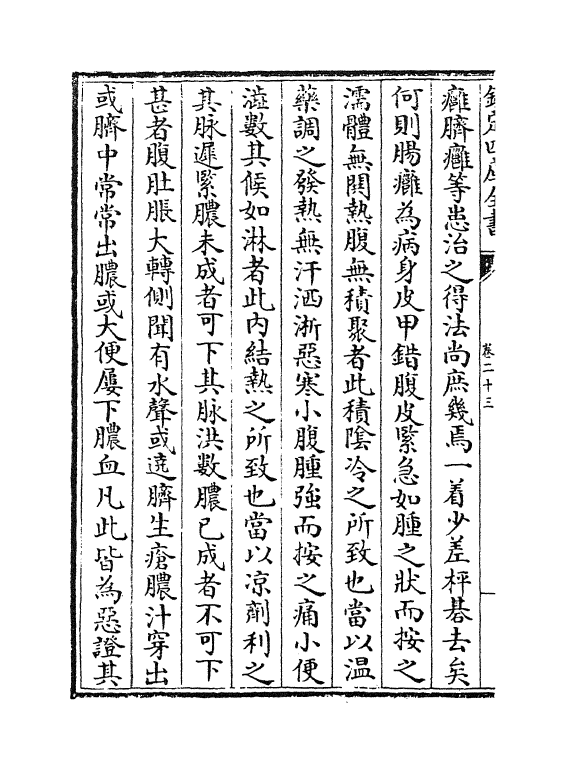 欽定四庫全書
卷二十三
癰臍癰等患治之得法尚庶幾焉一着少差枰碁去矣
何則腸癰為病身皮甲錯腹皮緊急如腫之狀而按之
濡體無關熱腹無積聚者此積隂冷之所致也當以温
藥調之發熱無汗洒淅惡寒小腹腫強而按之痛小便
澁數其候如淋者此内結熱之所致也當以凉劑利之
其脉遲緊膿未成者可下其脉洪數膿已成者不可下
甚者腹肚脹大轉側聞有水聲或遶臍生瘡膿汁穿出
或臍中常常出膿或大便屢下膿血凡此皆為惡證其